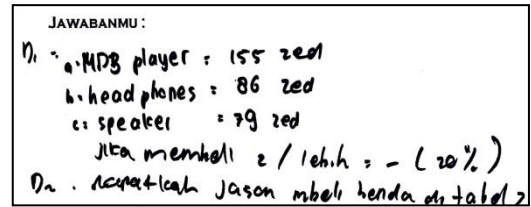 JAWABANMU:
D1 = a. MP3 player = 155 zed
b. head phones = 86 zed
c. speaker = 79 zed
Jika membeli 2 / lebih = - (20%)
D2. dapatkah jason mbeli benda di tabel ?